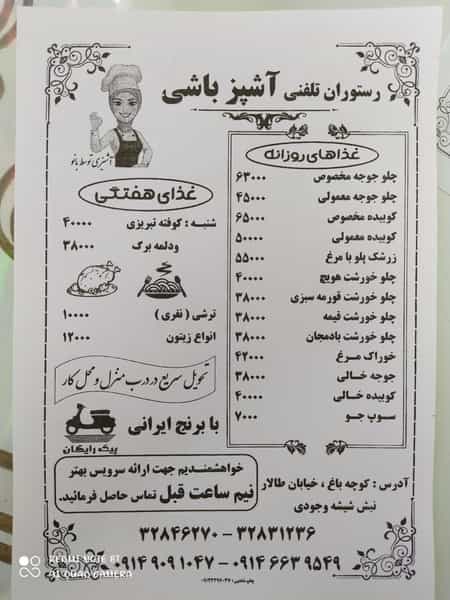 رستوران تلفنی آشپز باشی
آشپزی توسط بانو
غذاهای روزانه
چلو جوجه مخصوص ۶۳۰۰۰
چلو جوجه معمولی ۴۵۰۰۰
کوبیده مخصوص ۶۵۰۰۰
کوبیده معمولی ۵۰۰۰۰
زرشک پلو با مرغ ۵۵۰۰۰
چلو خورشت هویج ۴۰۰۰۰
چلو خورشت قورمه سبزی ۳۸۰۰۰
چلو خورشت قیمه ۳۸۰۰۰
چلو خورشت بادمجان ۳۸۰۰۰
خوراک مرغ ۴۲۰۰۰
جوجه خالی ۳۸۰۰۰
کوبیده خالی ۴۰۰۰۰
سوپ جو ۷۰۰۰
غذای هفتگی
شنبه : کوفته تبریزی ۴۰۰۰۰
ودلمه برگ ۳۸۰۰۰
ترشی ( نفری ) ۱۰۰۰۰
انواع زیتون ۱۲۰۰۰
تحویل سریع در درب منزل و محل کار
با برنج ایرانی
پیک رایگان
خواهشمندیم جهت ارائه سرویس بهتر
نیم ساعت قبل تماس حاصل فرمائید.
آدرس : کوچه باغ ، خیابان طالار
نبش شیشه وجودی
۳۲۸۴۶۲۷۰ - ۳۲۸۳۱۲۳۶
۰۹۱۴ ۹۰۹ ۱۰۴۷ - ۰۹۱۴ ۶۶۳ ۹۵۴۹
REDMI NOTE 8T
AI QUAD CAMERA